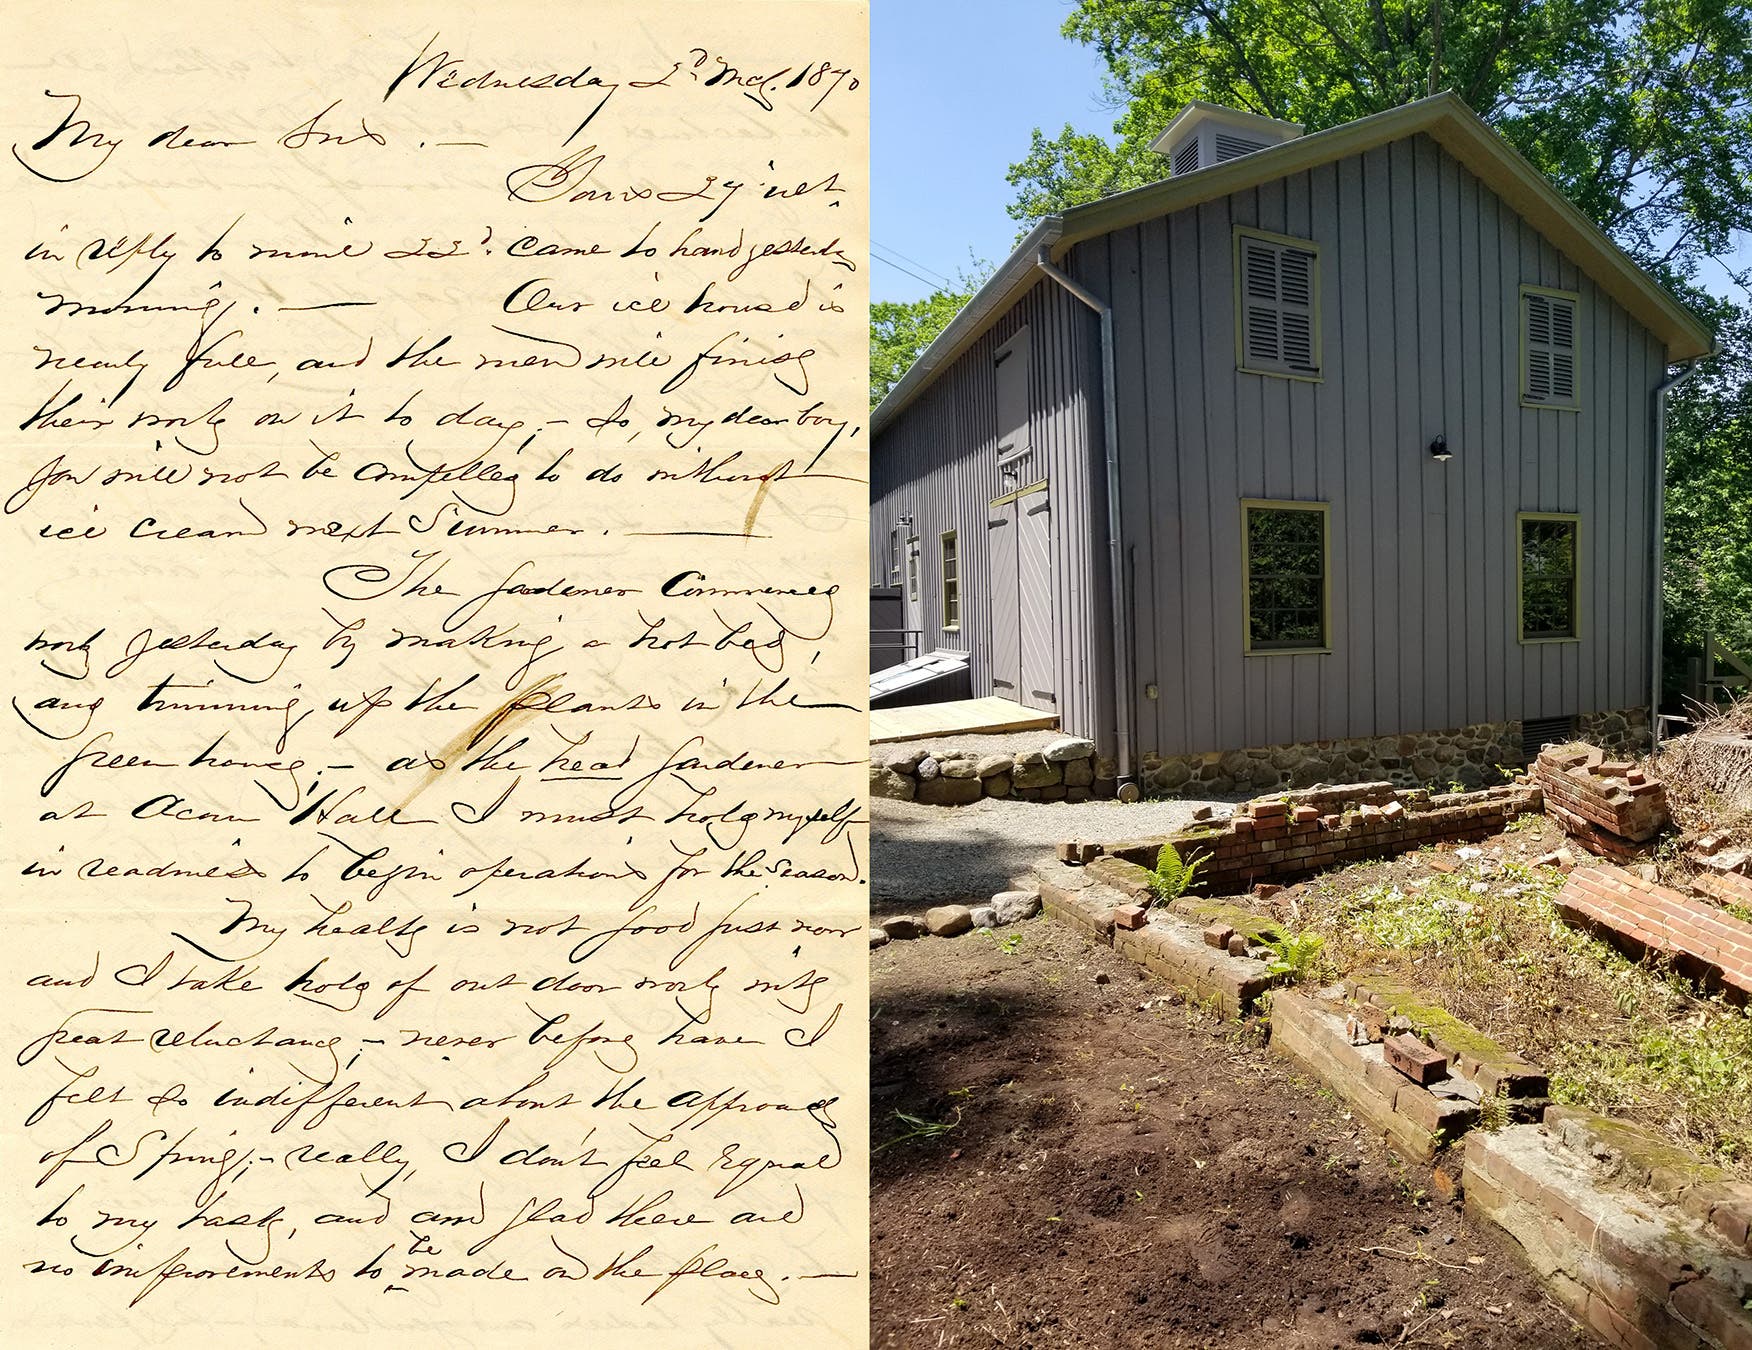 Wednesday 2d Mch. 1870
My dear
Yours 27 ult.
in reply to mine 22d. came to hand yesterday
morning. — Our ice house is
nearly full, and the men will finish
their work on it to day; – So, my dear boy,
you will not be compelled to do without
ice cream next Summer. —
The gardener commenced
work yesterday by making a hot bed,
and trimming up the plants in the
green house; – as the head gardener
at Acorn Hall I must hold myself
in readiness to begin operations for the season.
My health is not good just now
and I take hold of out door work with
great reluctance; – never before have I
felt so indifferent about the approach
of Spring; – really, I don't feel equal
to my task, and am glad there are
no improvements to be made on the place. —